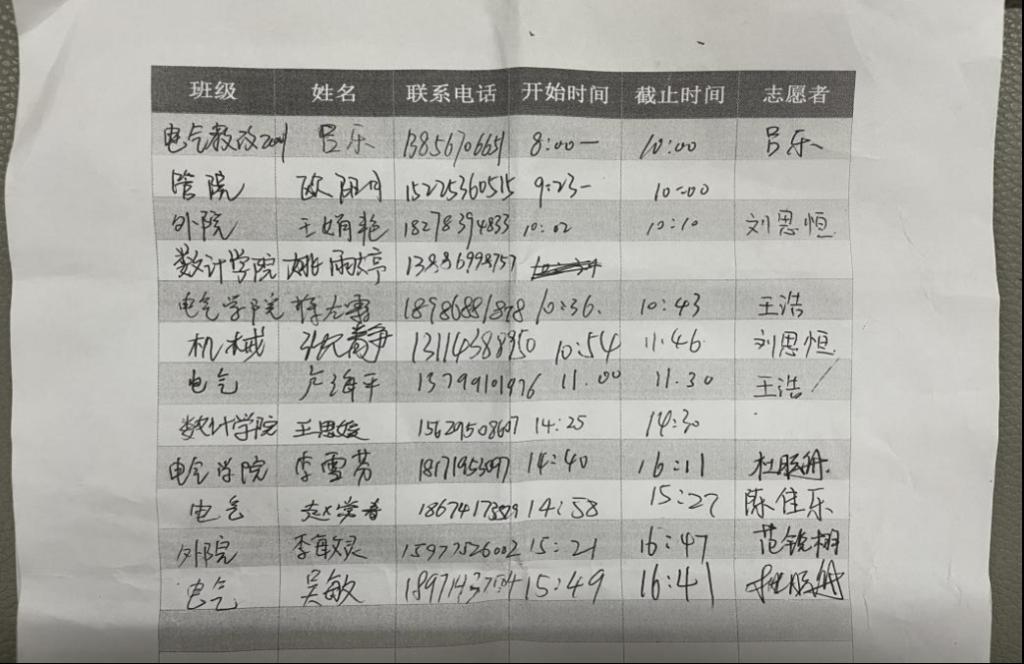 班级 姓名 联系电话 开始时间 截止时间 志愿者
电气教改2001 吕乐 13856706651 8:00— 10:00 吕乐
管院 欧阳月 15225360515 9:23- 10:00
外院 王娟艳 18278394833 10:02 10:10 刘思恒
数计学院 姚雨婷 13886998757
电气学院 18986881878 10:36. 10:43 王浩
机械 静 13114388950 10:54 11:46 刘思恒
电气 卢海平 13799101976 11.00 11.30 王浩
数计学院 王思媛 15629508607 14:25 14:30
电气学院 李雪芬 18171953097 14:40 16:11
电气 14:58 15:27 陈佳乐
外院 李敏灵 15977526002 15:21 16:47 范锐栩
电气 吴敏 15:49 16:41